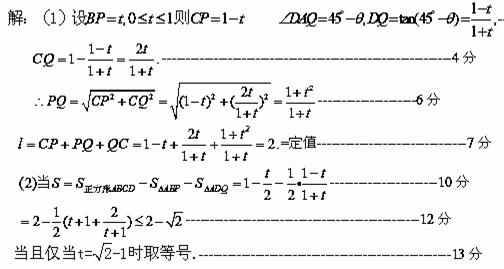 解：（1）设BP=t,0≤t≤1则CP=1−t ∠DAQ=45°−θ,DQ=tan(45°−θ)=\frac{1-t}{1+t},-
CQ=1-\frac{1-t}{1+t}=\frac{2t}{1+t}.----------------------------------------4 分
∴PQ=\sqrt{CP^2+CQ^2}=\sqrt{(1-t)^2+(\frac{2t}{1+t})^2}=\frac{1+t^2}{1+t}-----------------6 分
l=CP+PQ+QC=1-t+\frac{2t}{1+t}+\frac{1+t^2}{1+t}=2.=定值--------------------------7 分
(2)当S=S_{正方形ABCD}-S_{△ABP}-S_{△ADQ}=1-\frac{t}{2}-\frac{1}{2}•\frac{1-t}{1+t}------------------10 分
=2-\frac{1}{2}(t+1+\frac{2}{t+1})≤2-\sqrt{2}--------------------------------12 分
当且仅当t=\sqrt{2}-1时取等号.--------------------------------------------13 分